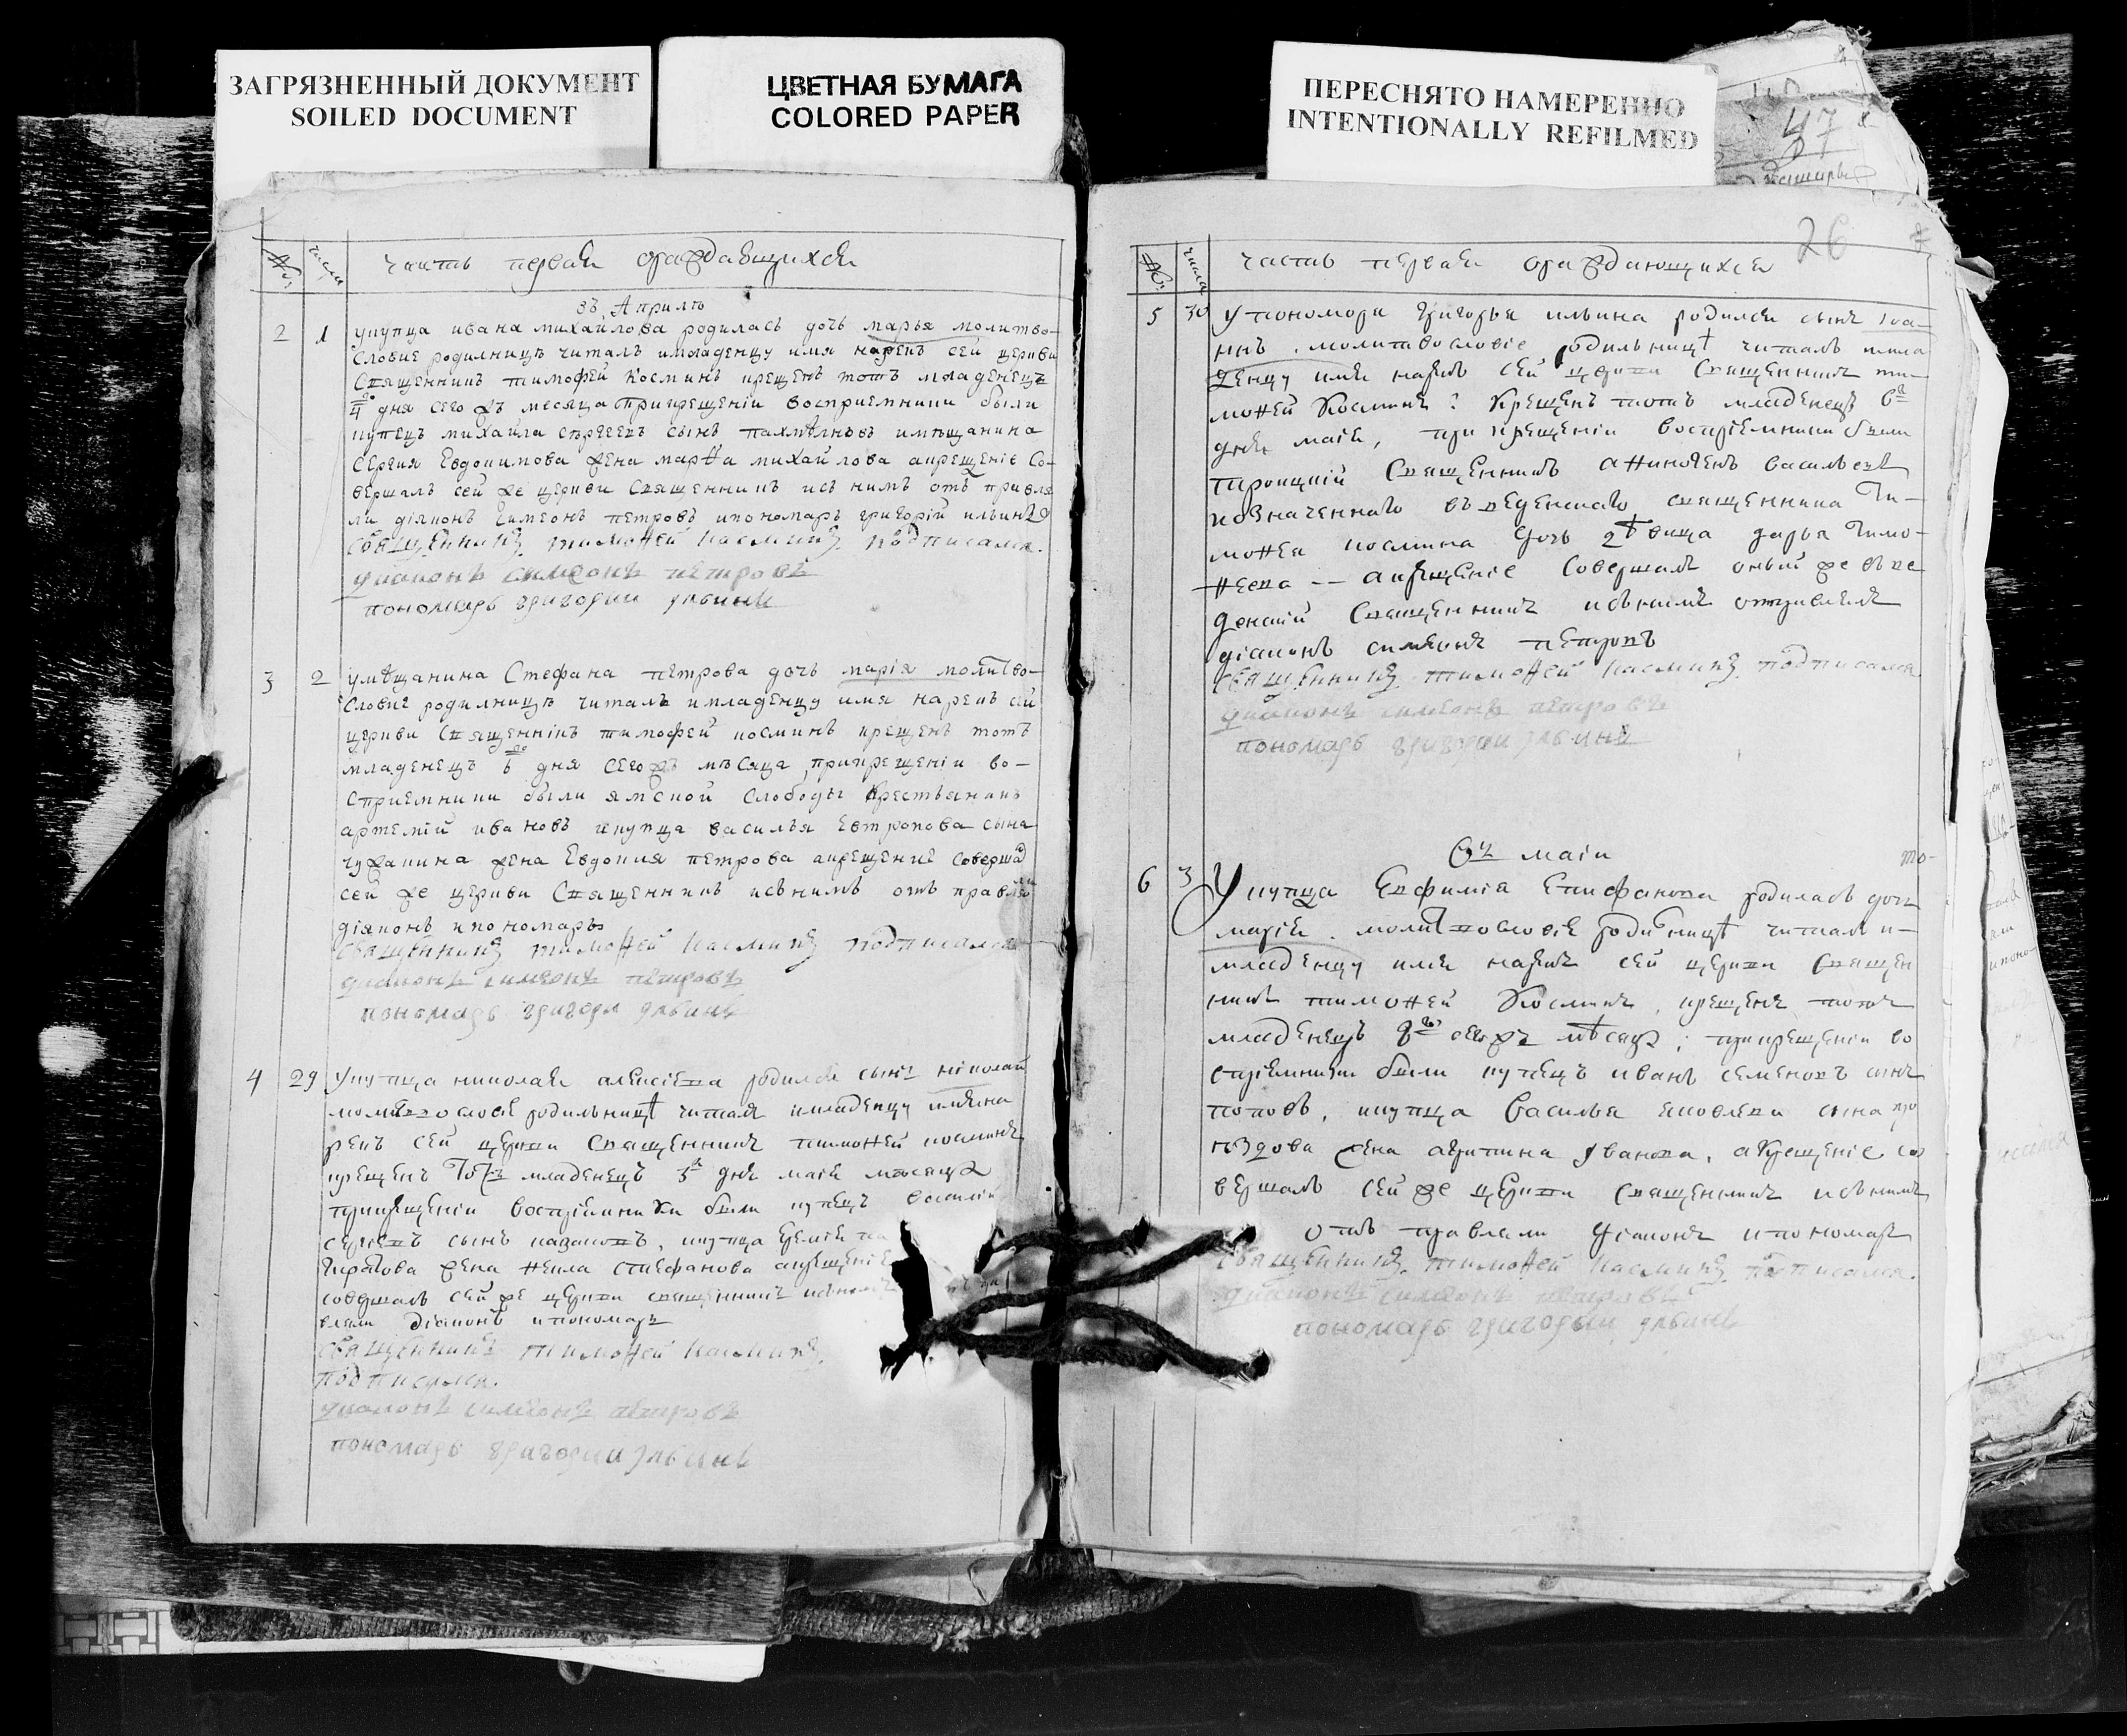 ЗАГРЯЗНЕННЫЙ ДОКУМЕНТ
SOILED DOCUMENT
ЦВЕТНАЯ БУМАГА
COLORED PAPER
ПЕРЕСНЯТО НАМЕРЕННО
INTENTIONALLY REFILMED
47
№ числа часть первая ораждающихся
въ Априлѣ
2 1 укупца ивана михайлова родилась дочь марья молитво-
словие родилницѣ читалъ имладенцу имя нарекъ сей церкви
Священникъ тимофей Косминъ крещенъ тотъ младенецъ
4го дня сего жъ месяца прикрещеніи восприемники были
купецъ михайла сергеевъ сынъ имѣщанина
Сергия Евдокимова жена марѳа михайлова акрещеніе Со-
вершалъ сей же церкви Священникъ исъ нимъ отъ правля
ли діяконъ Симеонъ петровъ ипономарь григорій ильинъ
Священникъ тимоѳей касминъ подписался.
диаконъ симеонъ петровъ
пономарь григории ильинъ
3 2 умѣщанина Стефана петрова дочь марія молитво-
словие родилницѣ читалъ имладенцу имя нарекъ сей
церкви Священнікъ тимофей косминъ крещенъ тотъ
младенецъ 6го дня сего жъ мѣсяца, прикрещеніи во-
сприемники были ямской слободы крестьянинъ
артемій ивановъ икупца василья Евтропова сына
чужанина жена Евдокия петрова акрещение совершал
сей же церкви Священникъ исънимъ отъ правляли
діяконъ ипономарь
Священникъ тимоѳей касминъ подписался
диаконъ симеонъ петровъ
пономарь григори ильинъ
4 29 Укупца николая алексіева родился сынъ николай
молитвословіе родильницѣ читалъ имладенцу имяна
рекъ сей церкви Священникъ тимоѳей косминъ
крещенъ Тотъ младенецъ 3го дня маія месяца
прикрещеніи воспріимники были купецъ василій
сергіевъ сынъ казаковъ, икупца
жена стефанова акрещеніе
совершалъ сей же церкви священникъ
вляли діаконъ ипономарь
Священникъ тимоѳей касминъ
подписался.
диаконъ симеонъ петровъ
пономарь григории ильинъ
26
№ числа часть первая ораждающихся
5 30 Упономоря григорья ильина родился сынъ іоа-
ннъ. молитвословіе родильницѣ читалъ имла
денцу имя нарекъ сей церкви Священникъ ти-
моѳей Косминъ: Крещенъ тотъ младенецъ 6го
дня маія, при крещеніи воспріемники были
троицкій Священникъ василіевъ
священника Ти-
моѳея космина дочь дѣвица дарья Тимо-
ѳеева — акрещеніе совершалъ оный же въве
денскій Священникъ исънимъ отправлялъ
діаконъ симеонъ петровъ
Священникъ тимоѳей касминъ подписался
диаконъ симеонъ петровъ
пономарь григории ильинъ
Въ маіи
6 3 Укупца Евфимія Епифанова родилась дочь
марія. молитвословіе родильницѣ читалъ и-
младенцу имя нарекъ сей церкви Священ
никъ тимоѳей Косминъ, крещенъ тотъ
младенецъ сегожъ мѣсяца; прикрещеніи во
спріемники были купецъ иванъ семеновъ сынъ
поповъ, икупца Василья яковлева сына
жена акулина иванова, акрещеніе со
вершалъ сей же церкви Священникъ исънимъ
отъ правляли діаконъ ипономарь
Священникъ тимоѳей касминъ подписался.
диаконъ симеонъ петровъ
пономарь григории ильинъ